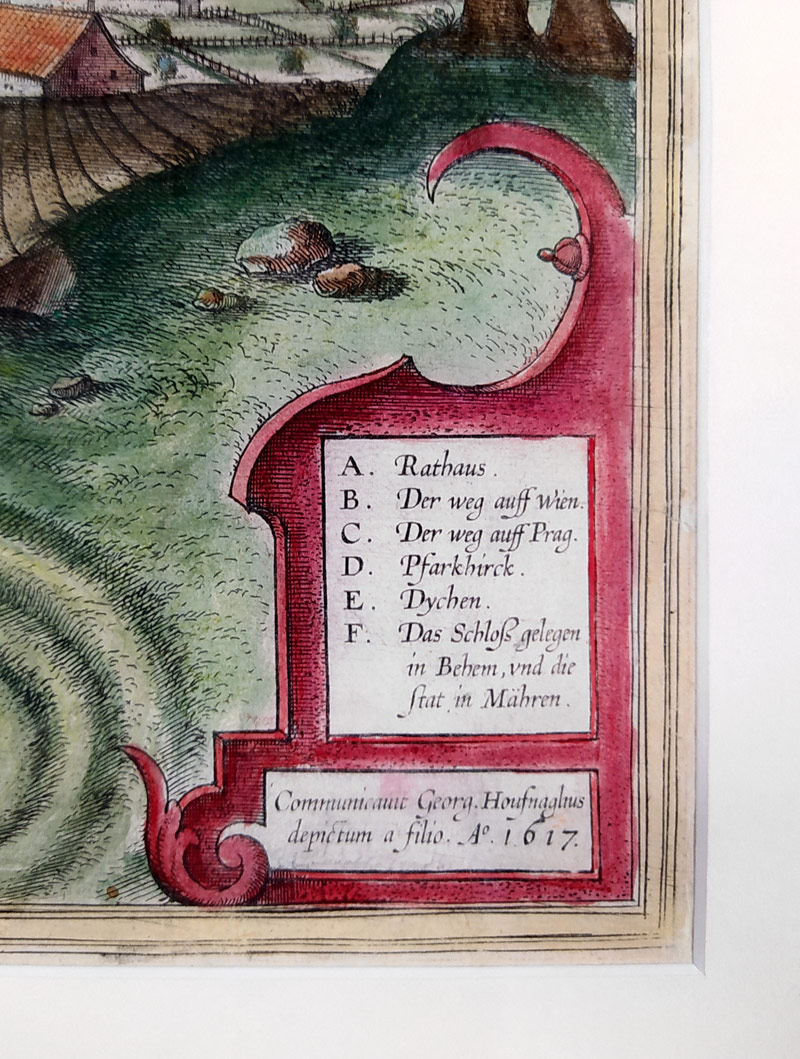 A. Rathaus.
B. Der weg auff Wien.
C. Der weg auff Prag.
D. Pfarkhirck.
E. Dychen.
F. Das Schloß gelegen
in Behem, vnd die
ſtat in Mähren.
Communicauit Georg. Houfnaglius
depictum a filio. Aº. 1617.